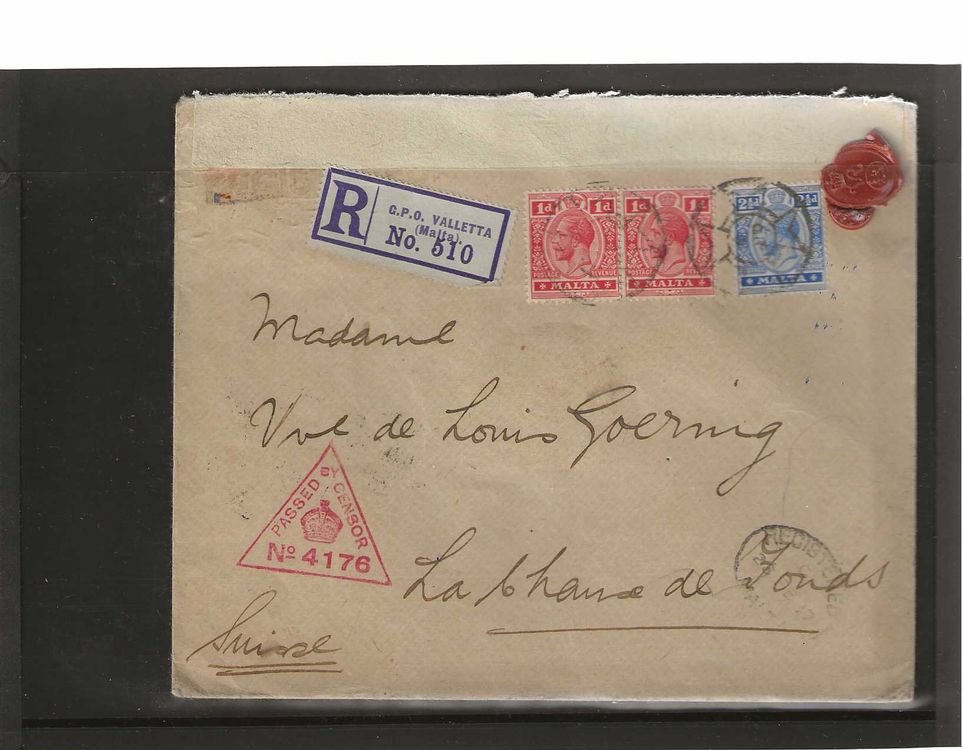 R
G.P.O. VALLETTA
(Malta).
No. 510
1d 1d
POSTAGE REVENUE
MALTA
1d 1d
POSTAGE REVENUE
MALTA
2½d 2½d
MALTA
Madame
Vve de Louis Goering
PASSED BY CENSOR
No 4176
La Chaux de Fonds
REGISTERED
Suisse